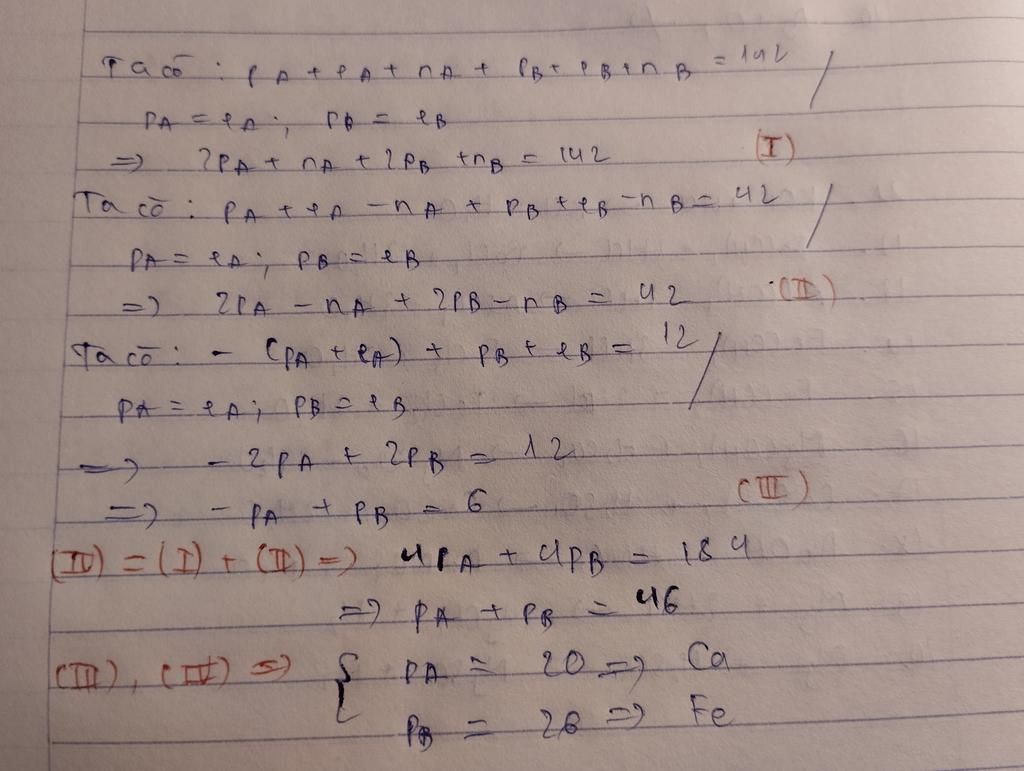 Ta có : pA + eA + nA + pB + eB + nB = 142 /
pA = eA ; pB = eB
=> 2pA + nA + 2pB + nB = 142 (I)
Ta có : pA + eA - nA + pB + eB - nB = 42 /
pA = eA ; pB = eB
=> 2pA - nA + 2pB - nB = 42 (II)
Ta có : - (pA + eA) + pB + eB = 12 /
pA = eA ; pB = eB
=> - 2pA + 2pB = 12
=> - pA + pB = 6 (III)
(IV) = (I) + (II) => 4pA + 4pB = 184
=> pA + pB = 46
(III), (IV) => { pA = 20 => Ca
pB = 26 => Fe